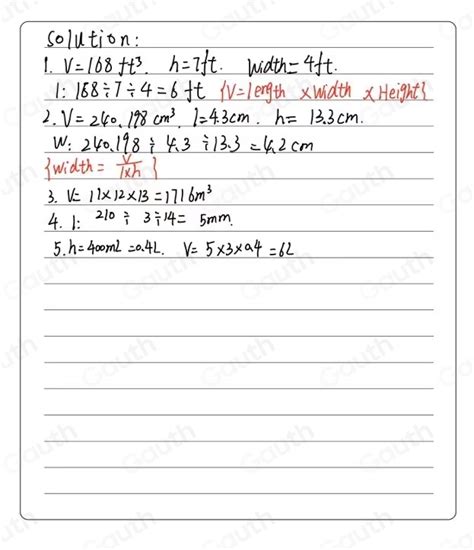 Solution:
1. V=168 ft³. h=7ft. Width=4ft.
l: 168÷7÷4=6 ft {V=length x width x Height}
2. V=240.198 cm³. l=4.3cm. h= 13.3cm.
W: 240.198 ÷ 4.3 ÷13.3 =4.2 cm
{width = V/l×h }
3. V= 11×12×13=1716m³
4. l: 210 ÷ 3÷14= 5mm.
5.h=400mL =0.4L. V= 5×3×0.4 =6L